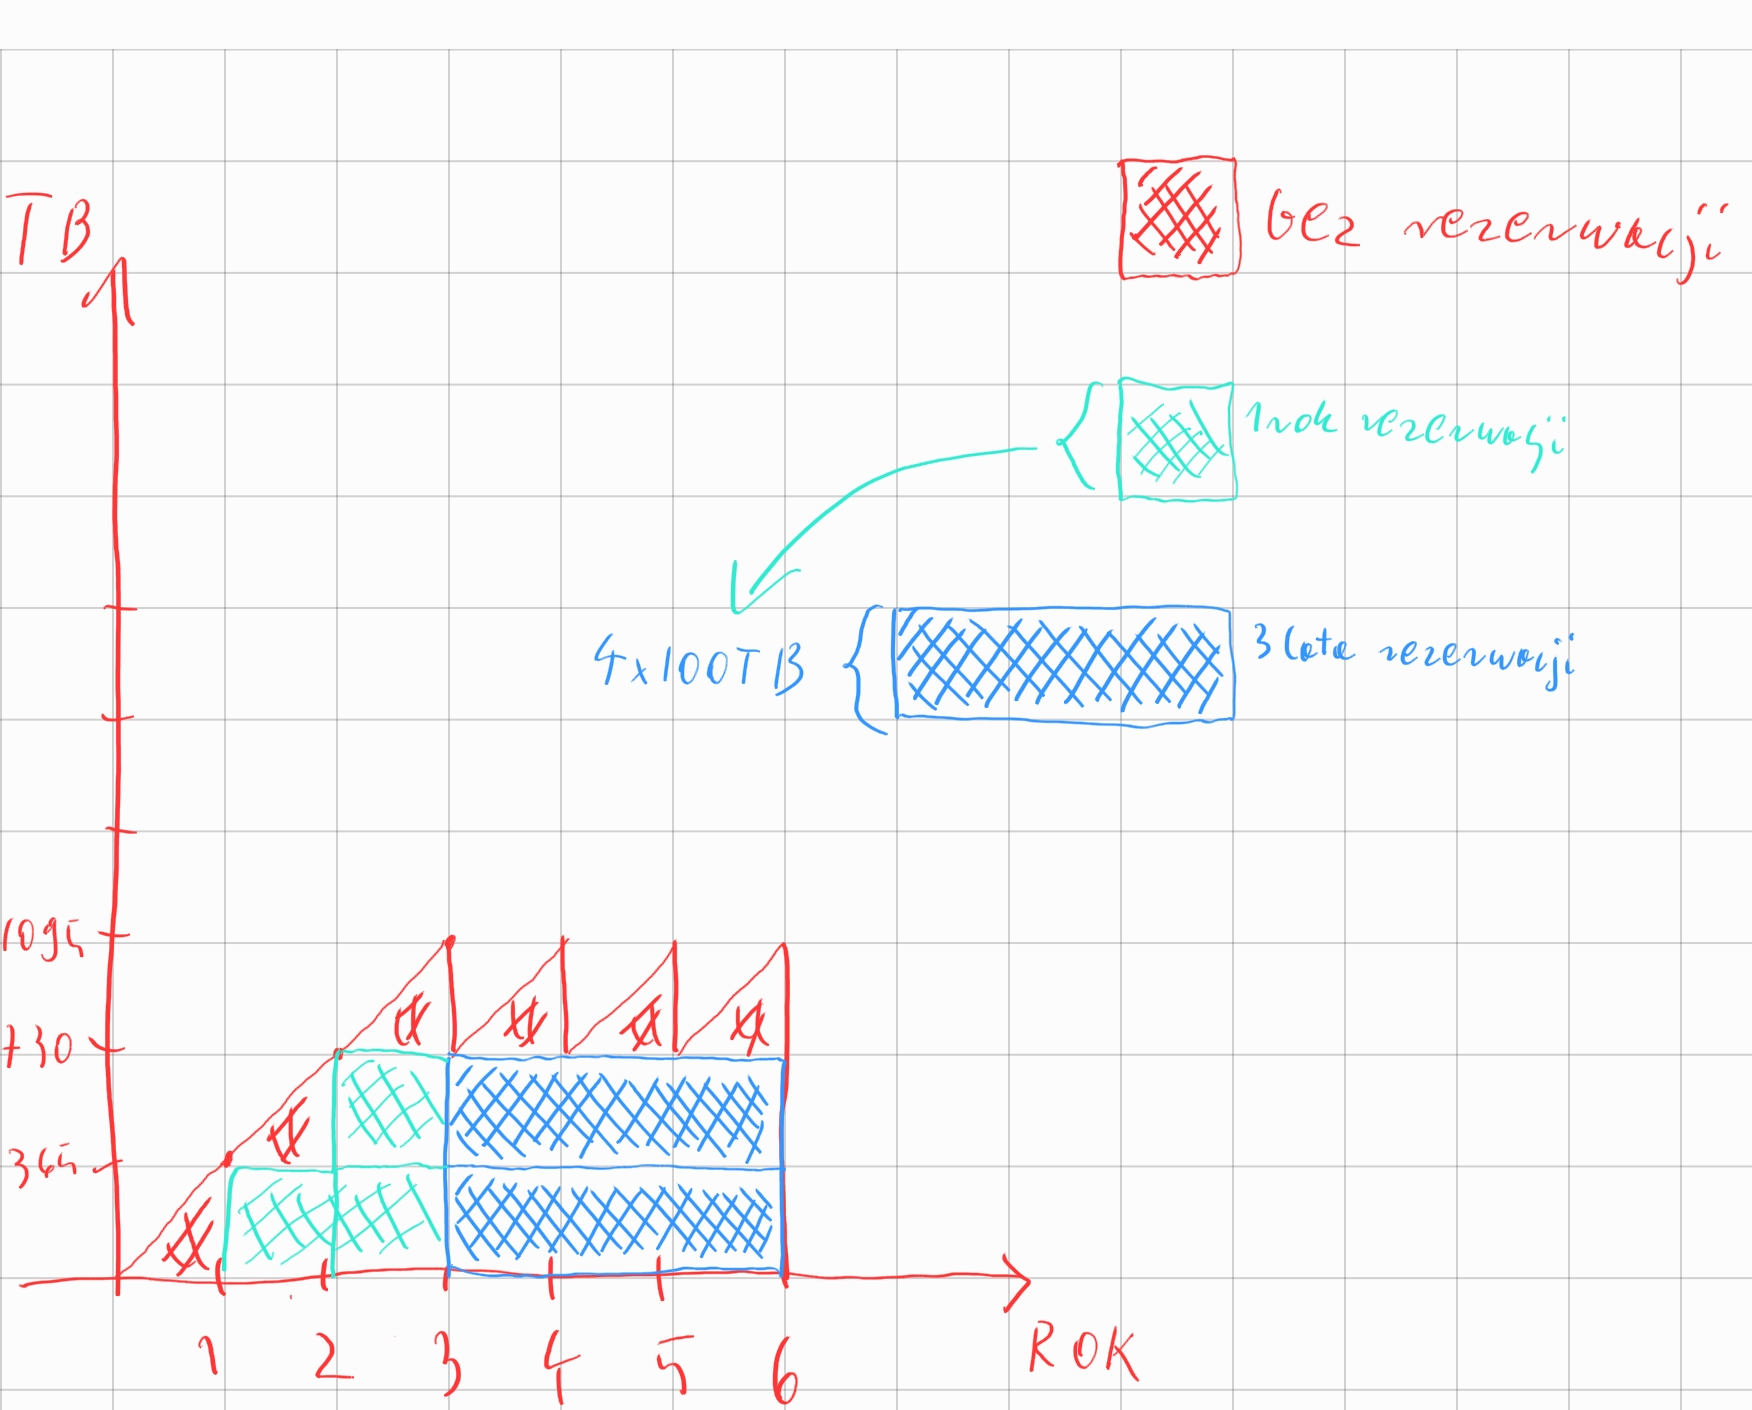 TB
bez rezerwacji
1 rok rezerwacji
4x100TB
3 lata rezerwacji
1095
730
365
1 2 3 4 5 6
ROK